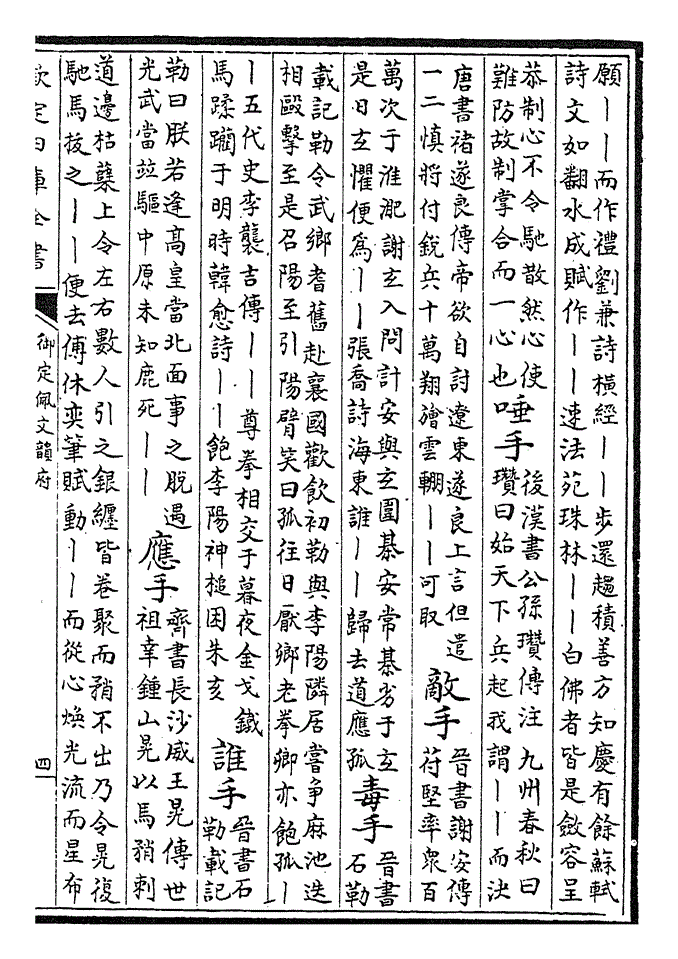 願丨丨而作禮劉兼詩橫經丨丨步還趨積善方知慶有餘蘇軾
詩文如翻水成賦作丨丨速法苑珠林丨丨白佛者皆是斂容呈
恭制心不令馳散然心使
難防故制掌合而一心也
唾手
後漢書公孫瓚傳注九州春秋曰
瓚曰始天下兵起我謂丨丨而決
唐書褚遂良傳帝欲自討遼東遂良上言但遣
一二慎將付銳兵十萬翔旝雲輣丨丨可取
敵手
晉書謝安傳
苻堅率衆百
萬次于淮淝謝玄入問計安與玄圍棊安常棊劣于玄
是日玄懼便爲丨丨張喬詩海東誰丨丨歸去道應孤
毒手
晉書
石勒
載記勒令武鄉耆舊赴襄國歡飲初勒與李陽隣居嘗爭麻池迭
相毆擊至是召陽至引陽臂笑曰孤往日厭卿老拳卿亦飽孤丨
丨五代史李襲吉傳丨丨尊拳相交于暮夜金戈鐵
馬蹂躪于明時韓愈詩丨丨飽李陽神槌困朱亥
誰手
晉書石
勒載記
勒曰朕若逢高皇當北面事之脫遇
光武當竝驅中原未知鹿死丨丨
應手
齊書長沙威王晃傳世
祖幸鍾山晃以馬矟刺
道邊枯蘖上令左右數人引之銀纏皆卷聚而矟不出乃令晃復
馳馬拔之丨丨便去傅休奕筆賦動丨丨而從心煥光流而星布
欽定四庫全書
御定佩文韻府
四